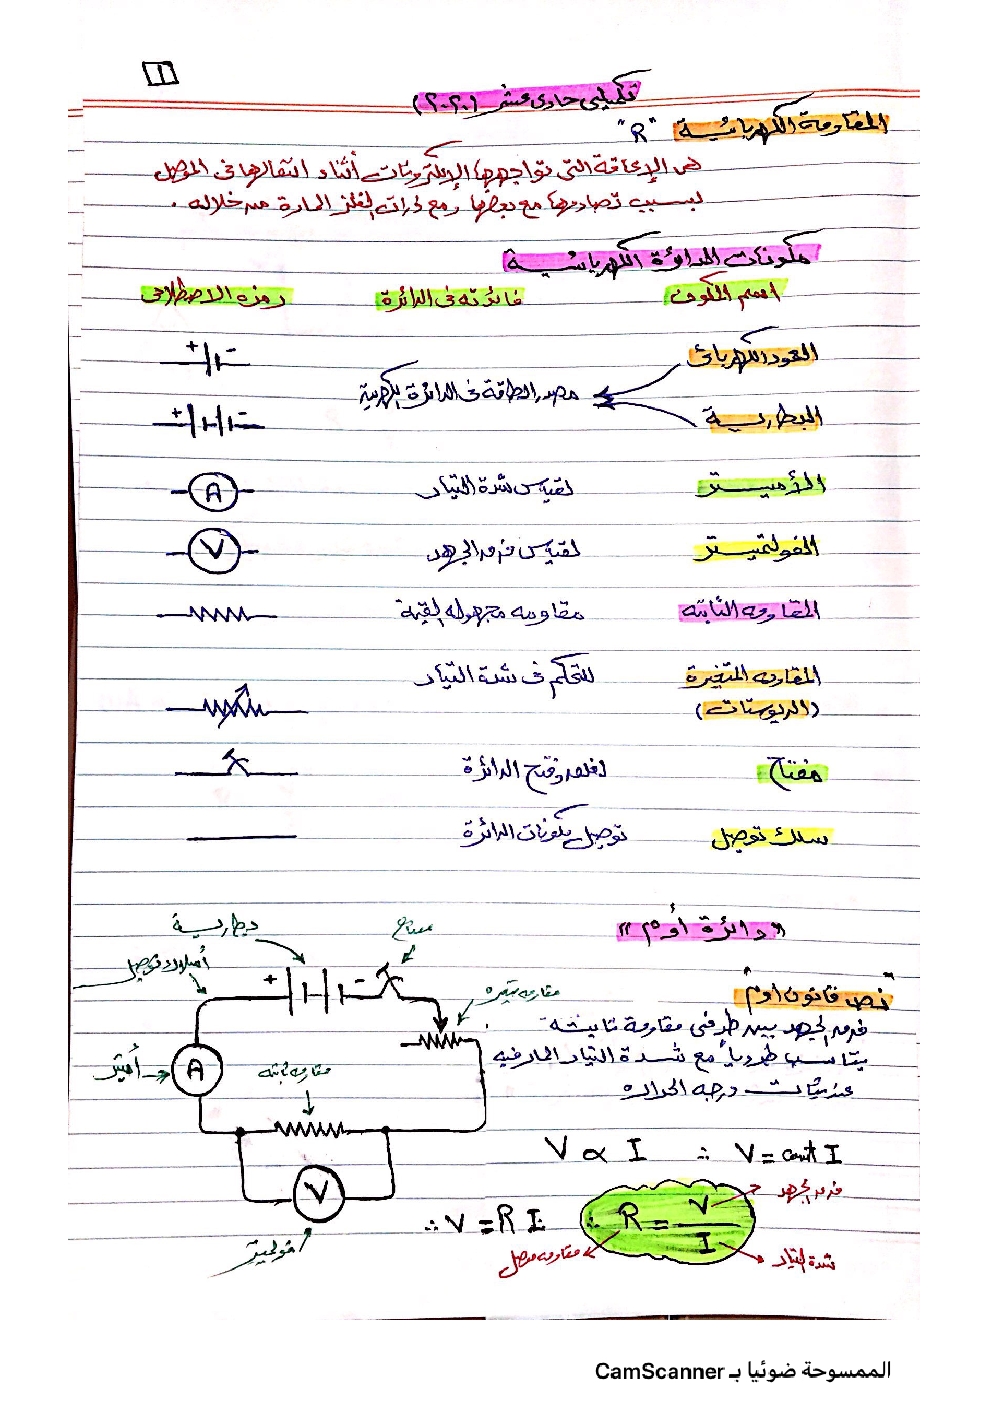 1
تكميلي حادى عشر (٢٠٢٠)
المقاومة الكهربائية "R"
هى الإعاقة التى تواجهها الإلكترونات أثناء انتقالها فى الموصل
بسبب تصادمها مع بعضها ومع ذرات الفلز المارة من خلاله .
مكونات الدائرة الكهربائية
اسم المكون فائدته فى الدائرة رمزه الاصطلاحى
العمود الكهربائى + -
مصدر الطاقة فى الدائرة الكهربية
البطارية + -
الأميتر لقياس شدة التيار A
الفولتميتر لقياس فرق الجهد V
المقاومه الثابته مقاومه مجهوله القيمة
المقاومه المتغيرة للتحكم فى شدة التيار
(الريوستات)
مفتاح لغلق وفتح الدائرة
سلك توصيل توصيل مكونات الدائرة
"دائرة أوم"
بطارية مفتاح
أسلاك توصيل + -
مقاومه متغيره
أميتر A
مقاومه ثابته
V
فولتميتر
نص قانون اوم
فرق الجهد بين طرفى مقاومة ثابته
يتناسب طردياً مع شدة التيار المار فيه
عند ثبات درجه الحراره
V ∝ I ∴ V = const I
فرق الجهد
∴ V = R I ∴ R = V / I
مقاومه موصل شدة التيار
الممسوحة ضوئيا بـ CamScanner